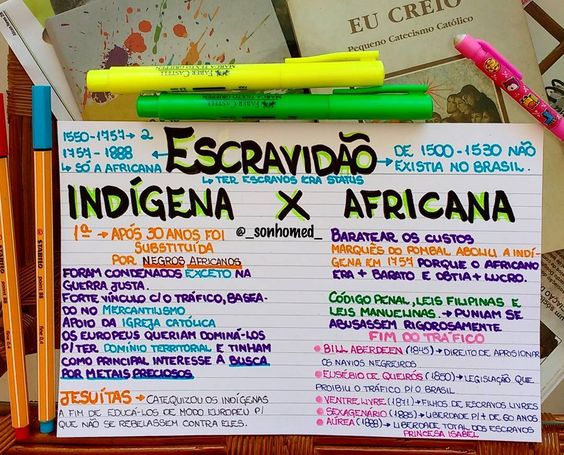 EU CREIO
Pequeno Catecismo Católico
FABER CASTELL
1550-1757→2
1757-1888
↳SÓ A AFRICANA
ESCRAVIDÃO
DE 1500-1530 NÃO
EXISTIA NO BRASIL.
↳TER ESCRAVOS ERA STATUS
INDÍGENA X AFRICANA
@_sonhomed_
1ª → APÓS 30 ANOS FOI
SUBSTITUÍDA
POR NEGROS AFRICANOS
FORAM CONDENADOS EXCETO NA
GUERRA JUSTA.
FORTE VÍNCULO C/O TRÁFICO, BASEA-
DO NO MERCANTILISMO
APOIO DA IGREJA CATÓLICA
OS EUROPEUS QUERIAM DOMINÁ-LOS
P/TER DOMÍNIO TERRITORIAL E TINHAM
COMO PRINCIPAL INTERESSE A BUSCA
POR METAIS PRECIOSOS.
JESUÍTAS → CATEQUIZOU OS INDÍGENAS
A FIM DE EDUCÁ-LOS DE MODO EUROPEU P/
QUE NÃO SE REBELASSEM CONTRA ELES.
BARATEAR OS CUSTOS
MARQUÊS DO POMBAL ABOLIU A INDÍ-
GENA EM 1757 PORQUE O AFRICANO
ERA + BARATO E OBTIA + LUCRO.
CÓDIGO PENAL, LEIS FILIPINAS E
LEIS MANUELINAS. → PUNIAM SE
ABUSASSEM RIGOROSAMENTE
FIM DO TRÁFICO
BILL ABERDEEN (1845) → DIREITO DE APRISIONAR
OS NAVIOS NEGREIROS
EUSÉBIO DE QUEIRÓS (1850) → LEGISLAÇÃO QUE
PROIBIU O TRÁFICO P/O BRASIL
VENTRE LIVRE (1871) → FILHOS DE ESCRAVOS LIVRES
SEXAGENÁRIO (1885) → LIBERDADE P/+ DE 60 ANOS
AÚREA (1888) → LIBERDADE TOTAL DOS ESCRAVOS
PRINCESA ISABEL
STABILO
STABILO